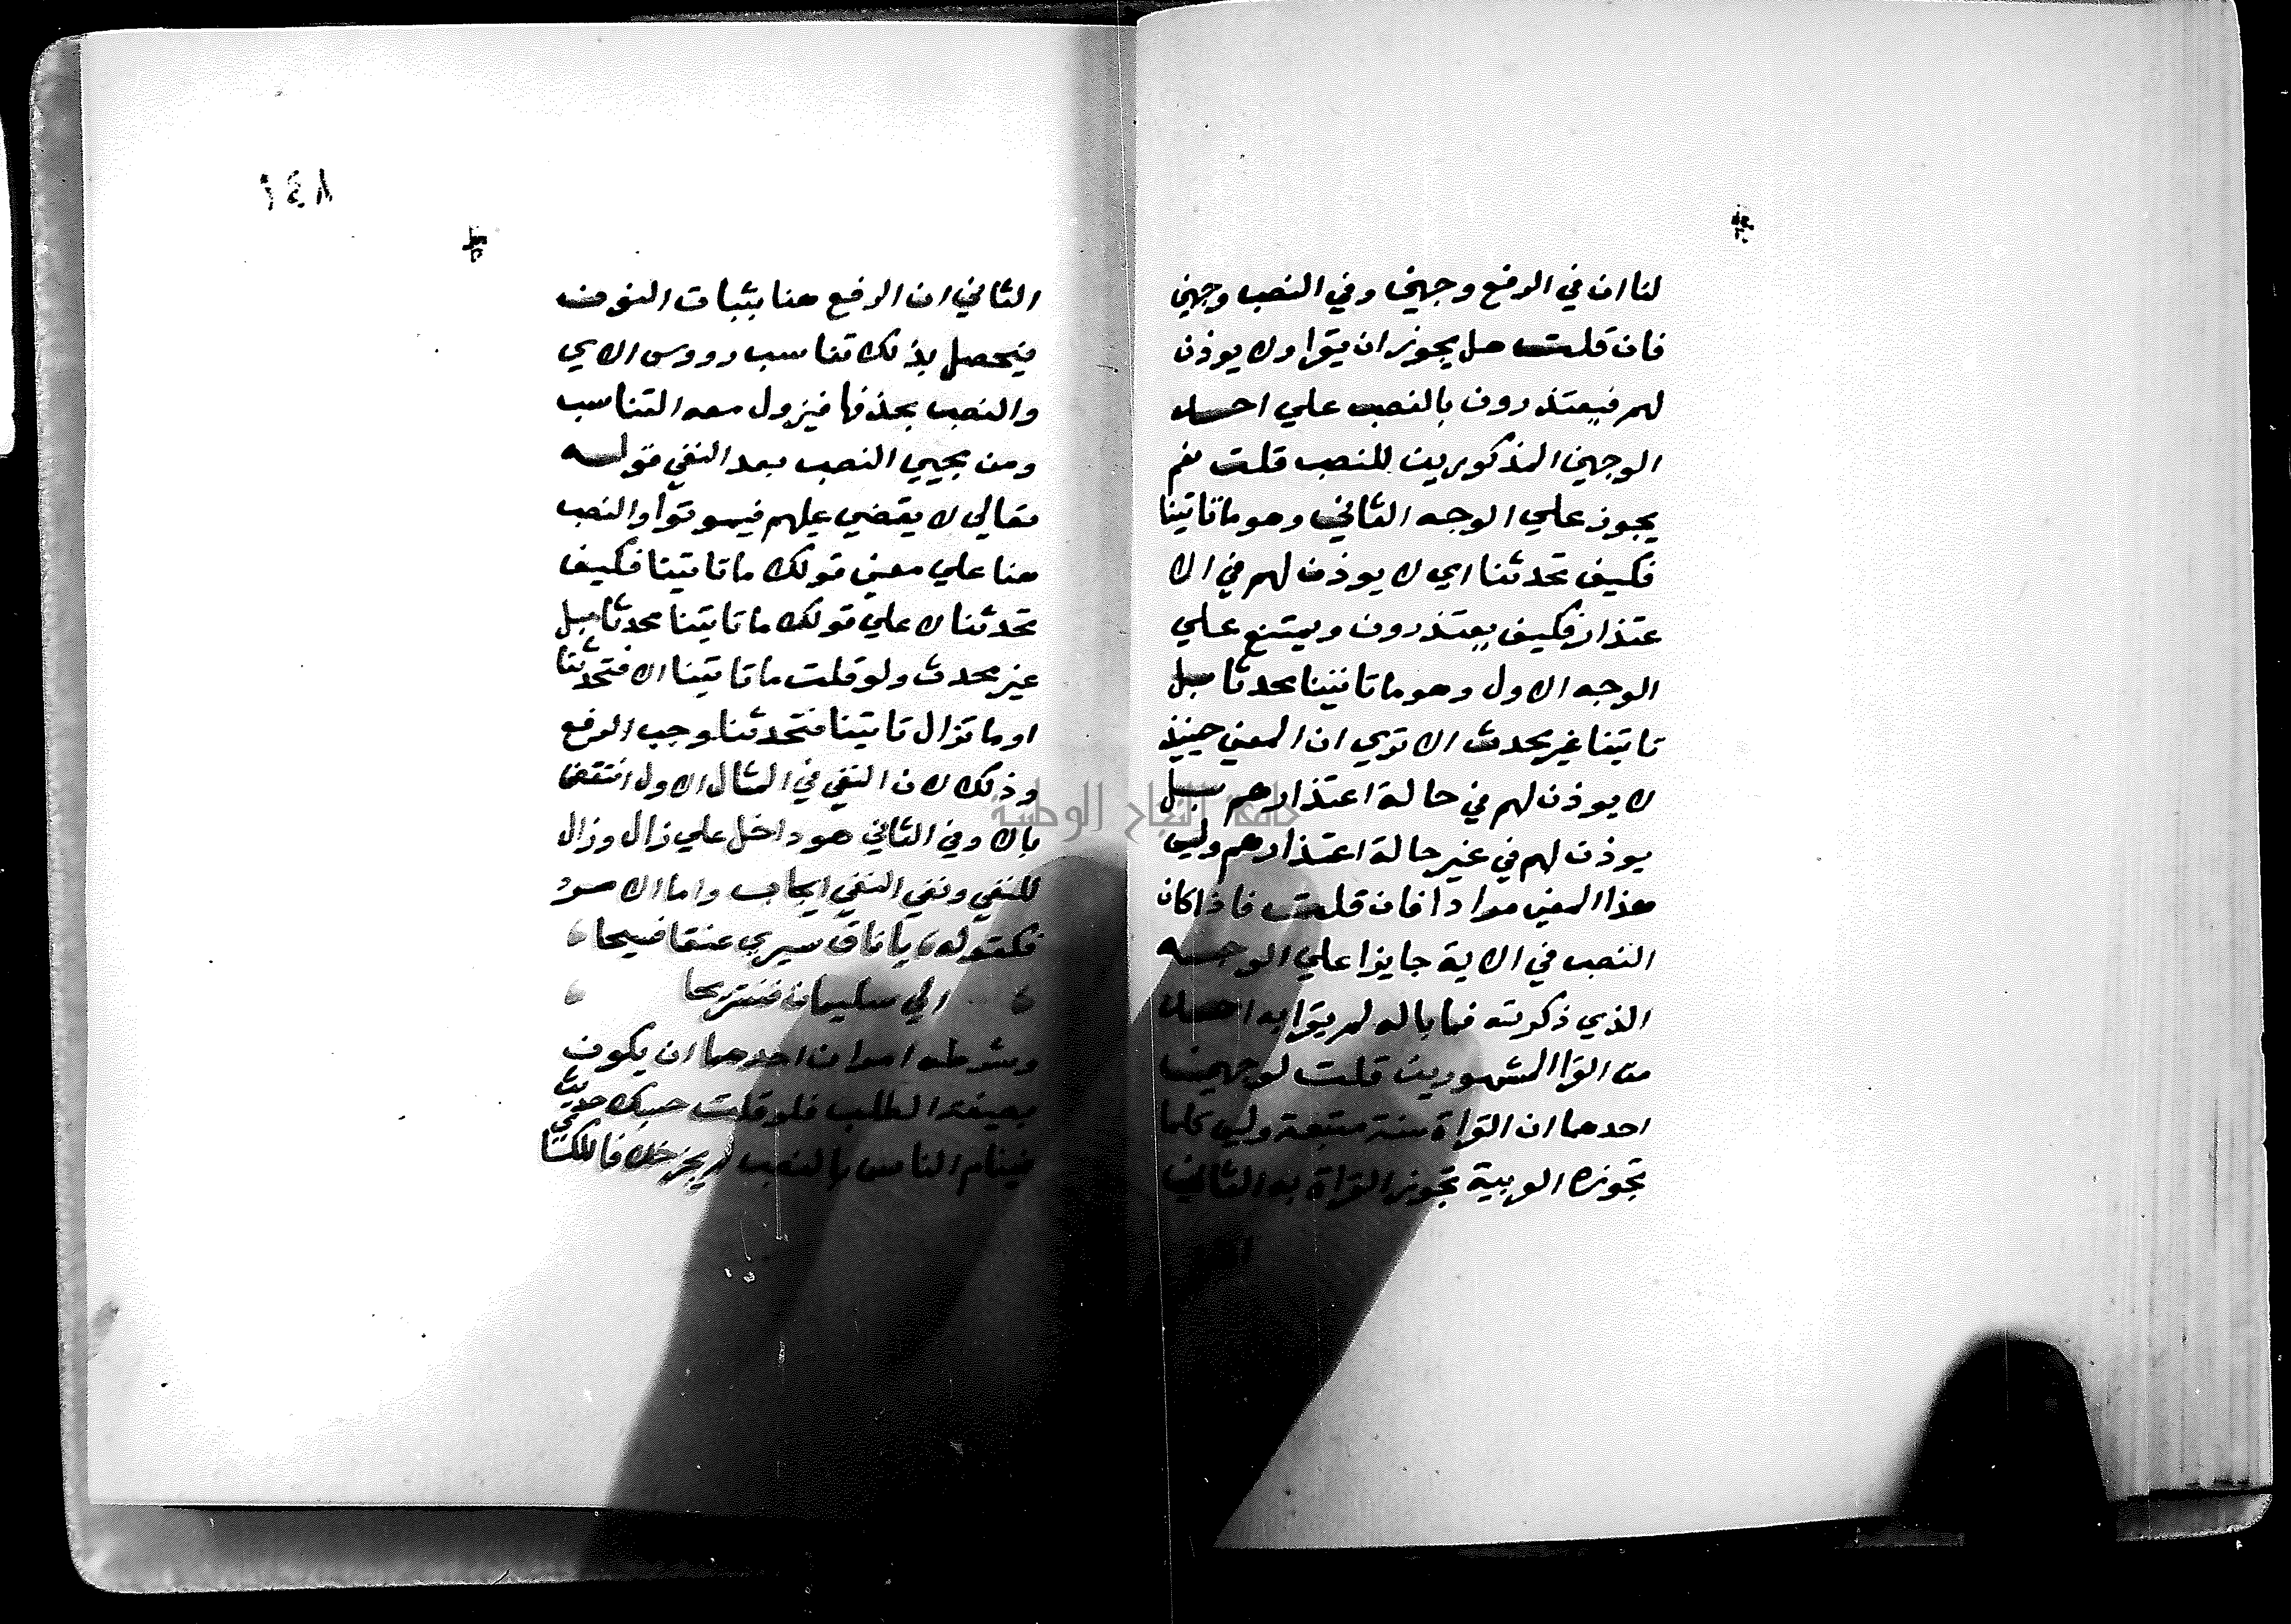 لنا ان في الرفع وجهين وفي النصب وجهين
فان قلت هل يجوز ان يقرا ولا يوذن
لهم فيعتذرون بالنصب علي احد
الوجهين المذكورين للنصب قلت نعم
يجوز علي الوجه الثاني وهو ما تاتينا
فكيف تحدثنا اي لا يوذن لهم في الا
عتذار فكيف يعتذرون ويمتنع علي
الوجه الاول وهو ما تاتينا محدثا بل
تاتينا غير محدث الا تري ان المعني حينيذ
لا يوذن لهم في حالة اعتذارهم بل
يوذن لهم في غير حالة اعتذارهم وليس
هذا المعني مرادا فان قلت فاذا كان
النصب في الاية جايزا علي الوجه
الذي ذكرته فما باله لم يقرا به احد
من القرا المشهورين قلت لوجهين
احدهما ان القراة سنة متبعة وليس كلما
تجوزه العربية تجوز القراة به الثاني
١٤٨
الثاني ان الرفع هنا بثبات النون
فيحصل بذلك تناسب رووس الاي
والنصب بحذفها فيزول معه التناسب
ومن مجيي النصب بعد النفي قوله
تعالي لا يقضي عليهم فيموتوا والنصب
هنا علي معني قولك ما تاتينا فكيف
تحدثنا لا علي قولك ما تاتينا محدثا بل
غير محدث ولو قلت ما تاتينا الا فتحدثنا
او ما تزال تاتينا فتحدثنا وجب الرفع
وذلك لان النفي في المثال الاول انتقض
بالا وفي الثاني هو داخل علي زال وزال
للنفي ونفي النفي ايجاب واما الامر
فكقوله يا ناق سيري عنقا فسيحا
الي سليمان فنستريحا
وشرطه امران احدهما ان يكون
بصيغة الطلب فلو قلت حسبك حديث
فينام الناس بالنصب لم يجز خلافا للكسائي
جامعة النجاح الوطنية